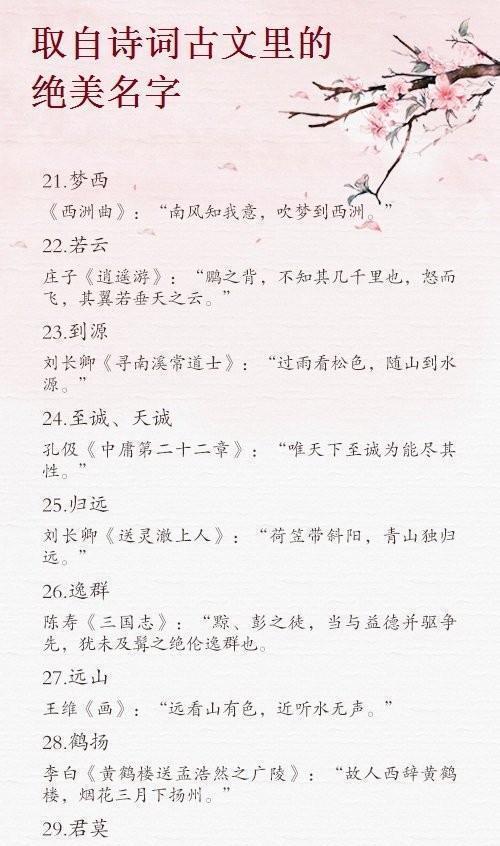 取自诗词古文里的
绝美名字
21.梦西
《西洲曲》：“南风知我意，吹梦到西洲。”
22.若云
庄子《逍遥游》：“鹏之背，不知其几千里也，怒而
飞，其翼若垂天之云。”
23.到源
刘长卿《寻南溪常道士》：“过雨看松色，随山到水
源。”
24.至诚、天诚
孔伋《中庸第二十二章》：“唯天下至诚为能尽其
性。”
25.归远
刘长卿《送灵澈上人》：“荷笠带斜阳，青山独归
远。”
26.逸群
陈寿《三国志》：“黥、彭之徒，当与益德并驱争
先，犹未及髯之绝伦逸群也。
27.远山
王维《画》：“远看山有色，近听水无声。”
28.鹤扬
李白《黄鹤楼送孟浩然之广陵》：“故人西辞黄鹤
楼，烟花三月下扬州。”
29.君莫